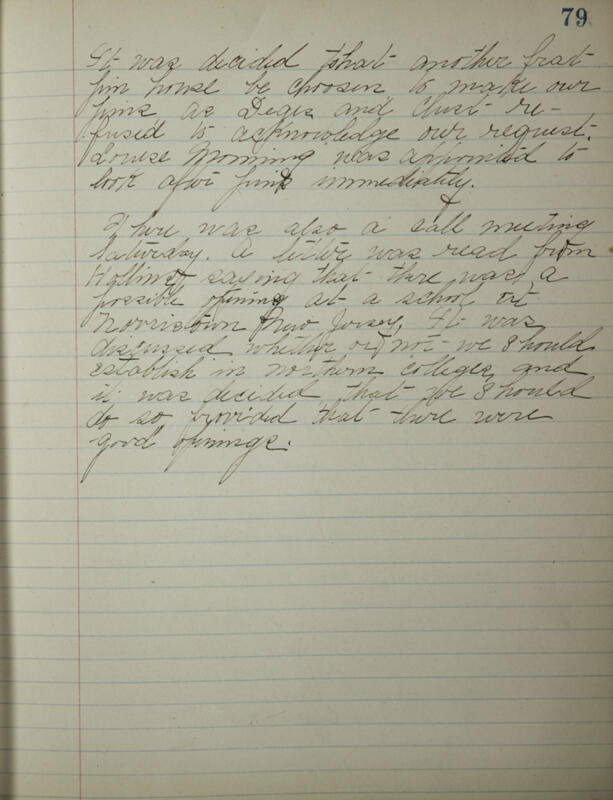 79
It was decided that another frat
pin house be chosen to make our
pins, as Deges and Clust re-
fused to acknowledge our request.
Louise Monning was appointed to
look after pins immediately.
There was also a call meeting
Saturday. A letter was read from
Hollins saying that there was a
possible opening at a school at
Norristown New Jersey. It was
discussed whether or not we should
establish in northern colleges and
it was decided that we should
do so provided that there were
good openings.